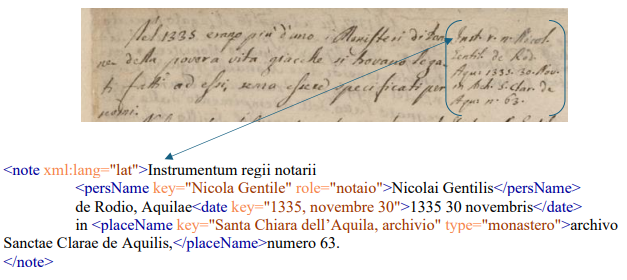 Nel 1335 erano più d'uno i Monisteri di don-
ne della povera vita giacchè si trovano lega-
ti fatti ad essi, senza essere specificati per
nomi.
Inst. r. n. Nicol.
Gentil. de Rod.
1335. 30. Nov.
in Arch. S. Clar. de
n. 63.
<note xml:lang="lat">Instrumentum regii notarii
<persName key="Nicola Gentile" role="notaio">Nicolai Gentilis</persName>
de Rodio, Aquilae<date key="1335, novembre 30">1335 30 novembris</date>
in <placeName key="Santa Chiara dell’Aquila, archivio" type="monastero">archivo
Sanctae Clarae de Aquilis,</placeName>numero 63.
</note>